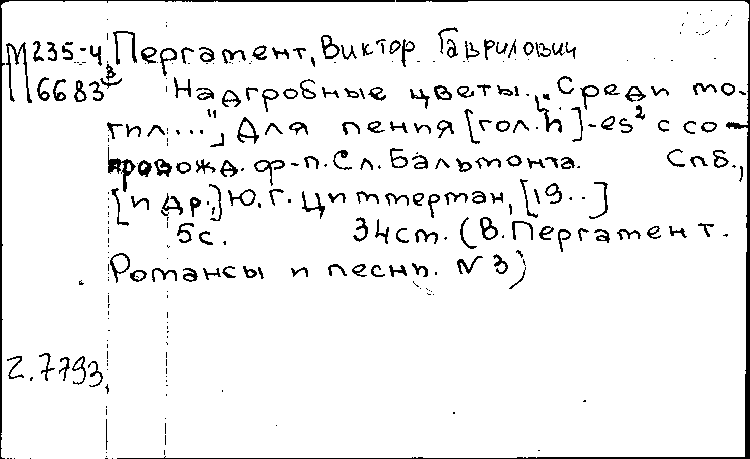 М235-4 Пергамент, Виктор Гаврилович
6683 Надгробные цветы. „Среди мо-
гил...", Для пения [гол. h]-es² с со-
провожд. ф-п. Сл. Бальмонта. Спб.,
[и др.] Ю. Г. Циммерман, [19..]
5с. 34см. (В. Пергамент.
Романсы и песни. N 3)
2.7793